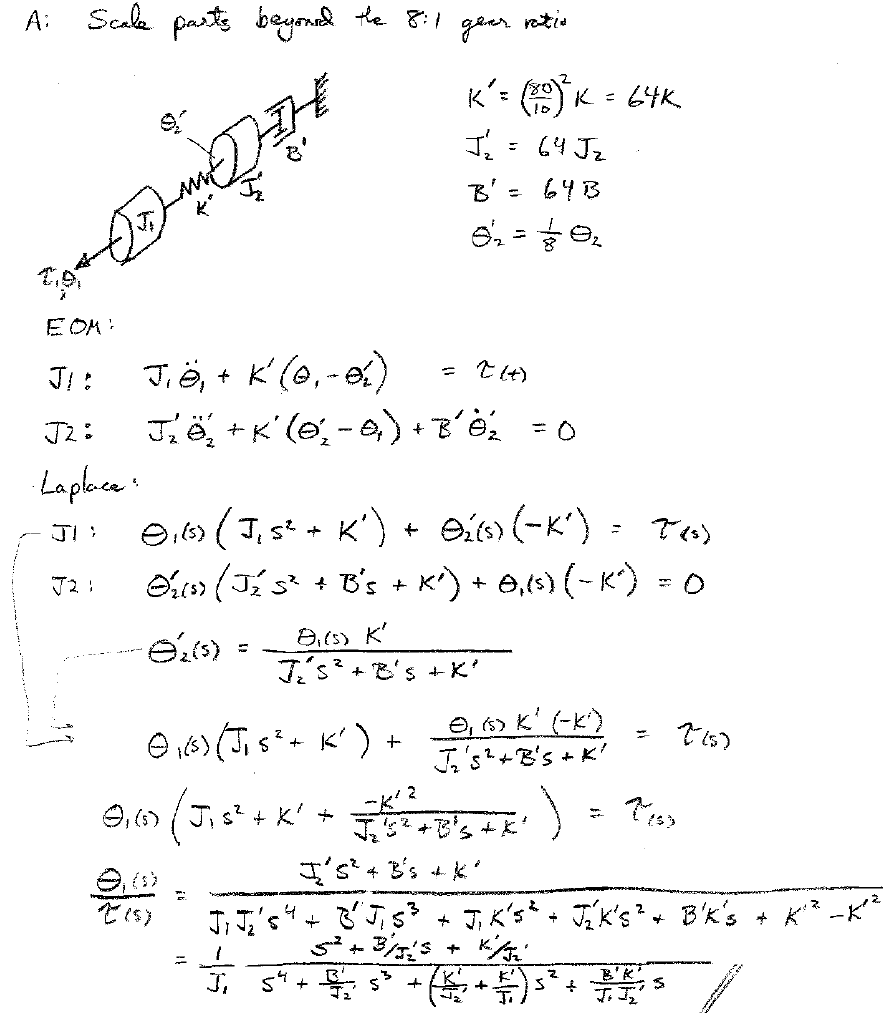 A: Scale parts beyond the 8:1 gear ratio
K' = (80/10)² K = 64K
J₂' = 64 J₂
B' = 64 B
θ₂' = 1/8 θ₂
θ₂'
B'
J₂'
K'
J₁
τ, θ₁
EOM:
J1: J₁ θ̈₁ + K'(θ₁ - θ₂') = τ(t)
J2: J₂' θ̈₂' + K'(θ₂' - θ₁) + B' θ̇₂' = 0
Laplace:
J1: Θ₁(s) (J₁ s² + K') + Θ₂'(s) (-K') = τ(s)
J2: Θ₂'(s) (J₂' s² + B's + K') + Θ₁(s) (-K') = 0
Θ₂'(s) = Θ₁(s) K' / (J₂' s² + B's + K')
Θ₁(s) (J₁ s² + K') + Θ₁(s) K' (-K') / (J₂' s² + B's + K') = τ(s)
Θ₁(s) (J₁ s² + K' + -K'² / (J₂' s² + B's + K')) = τ(s)
Θ₁(s)/τ(s) = (J₂' s² + B's + K') / (J₁ J₂' s⁴ + B' J₁ s³ + J₁ K' s² + J₂' K' s² + B'K's + K'² - K'²)
= 1/J₁ (s² + B'/J₂' s + K'/J₂') / (s⁴ + B'/J₂' s³ + (K'/J₂' + K'/J₁) s² + B'K'/J₁J₂' s)